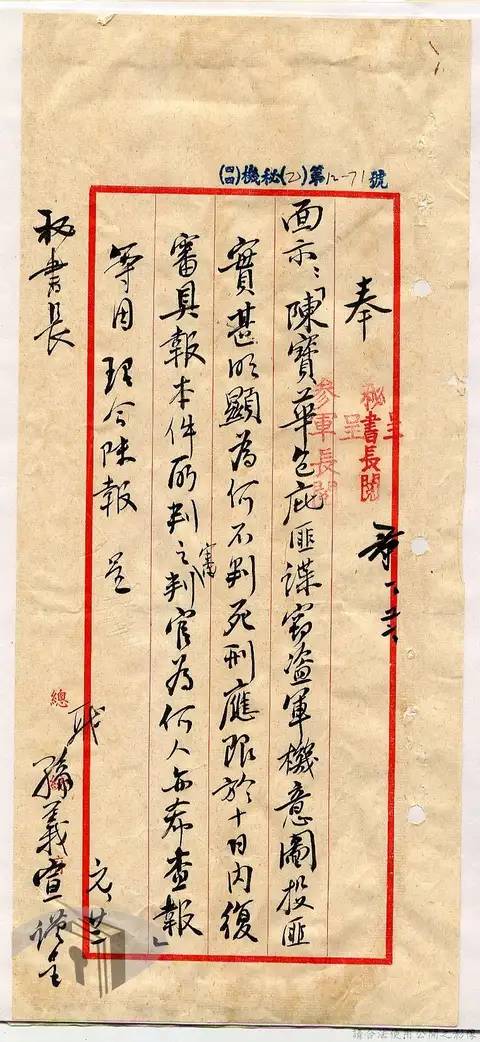 (四四)機秘(乙)第12-71號
奉
面示:「陳寶華包庇匪諜窃盜軍機意圖投匪
實甚明顯為何不判死刑應限於十日內復
審具報本件所判之審判官為何人亦希查報」
等因理合陳報 呈
秘書長
職 孫義宣謹呈 元、廿
呈
秘書長閱
呈
參軍長閱
總
請合法使用公開之影像